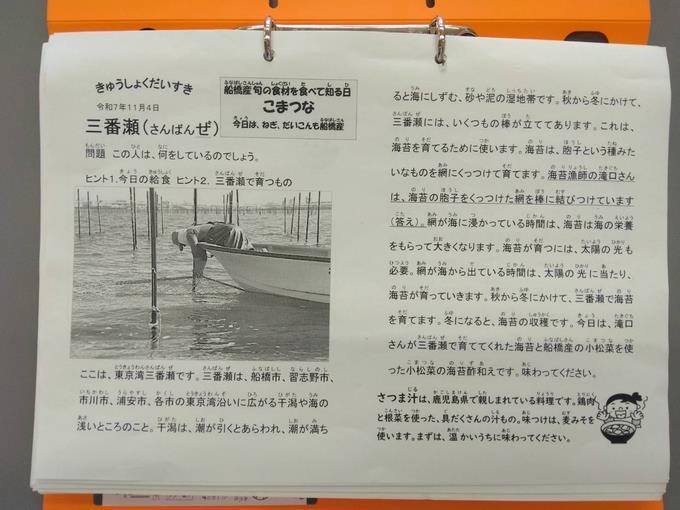 きゅうしょくだいすき
令和7年11月4日
船橋産 旬の食材を食べて知る日
こまつな
今日は、ねぎ、だいこんも船橋産
三番瀬(さんばんぜ)
問題 この人は、何をしているのでしょう。
ヒント1.今日の給食 ヒント2.三番瀬で育つもの
ここは、東京湾三番瀬です。三番瀬は、船橋市、習志野市、
市川市、浦安市、各市の東京湾沿いに広がる干潟や海の
浅いところのこと。干潟は、潮が引くとあらわれ、潮が満ち
ると海にしずむ、砂や泥の湿地帯です。秋から冬にかけて、
三番瀬には、いくつもの棒が立ててあります。これは、
海苔を育てるために使います。海苔は、胞子という種みた
いなものを網にくっつけて育てます。海苔漁師の滝口さん
は、海苔の胞子をくっつけた網を棒に結びつけています
(答え)。網が海に浸かっている時間は、海苔は海の栄養
をもらって大きくなります。海苔が育つには、太陽の光も
必要。網が海から出ている時間は、太陽の光に当たり、
海苔が育っていきます。秋から冬にかけて、三番瀬で海苔
を育てます。冬になると、海苔の収穫です。今日は、滝口
さんが三番瀬で育ててくれた海苔と船橋産の小松菜を使
った小松菜の海苔酢和えです。味わってください。
さつま汁は、鹿児島県で親しまれている料理です。鶏肉
と根菜を使った、具だくさんの汁もの。味つけは、麦みそを
使います。まずは、温かいうちに味わってください。